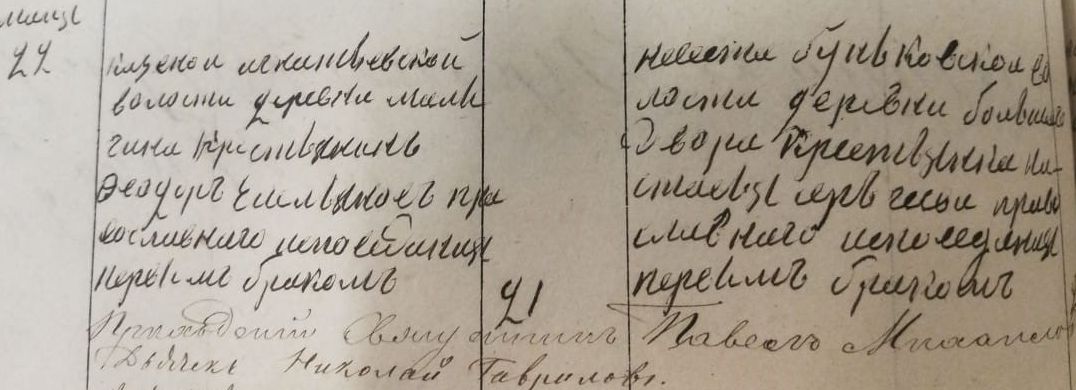 22
казеной игнатьевской
волости деревни мали
гина крестьянинъ
Ѳеодоръ Емельяновъ пра
вославнаго исповеданія
первымъ бракомъ
21
невеста буньковской во
лости деревни большаго
Двора крестьянка на-
стасья право
славнаго исповеданія
первымъ бракомъ
Приходской Священникъ Павелъ Михаиловъ
Дьячекъ Николай Гавриловъ.